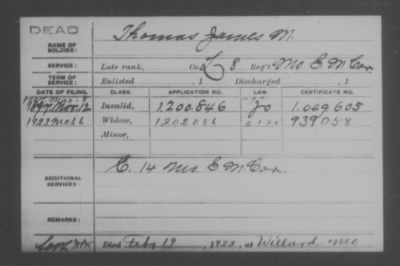 DEAD
NAME OF SOLDIER: Thomas James M.
SERVICE: Late rank, Co. 8 Reg't Mo E M Cav.
TERM OF SERVICE: Enlisted , 1 Discharged , 1
DATE OF FILING. CLASS. APPLICATION NO. LAW. CERTIFICATE NO.
1897 Nov 12 Invalid, 1.200.846 1.049.605
1922 Widow, 939058
Minor,
ADDITIONAL SERVICES: C. 14 Mo. E M Cav.
REMARKS:
Died Feby 19, 1922, at Willard Mo